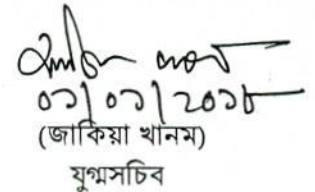 ০১/০১/২০১৮
(জাকিয়া খানম)
যুগ্মসচিব